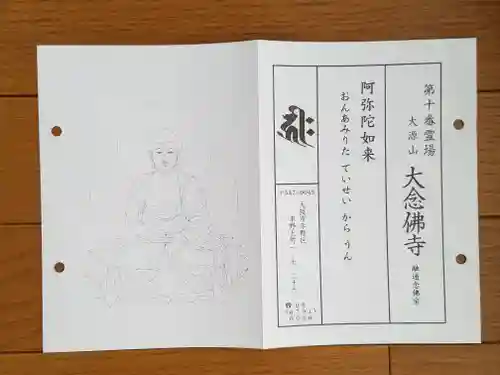 第十番霊場
大源山
大念佛寺
融通念佛宗
阿弥陀如来
おんあみりた ていせい から うん
〒547-0045
大阪市平野区